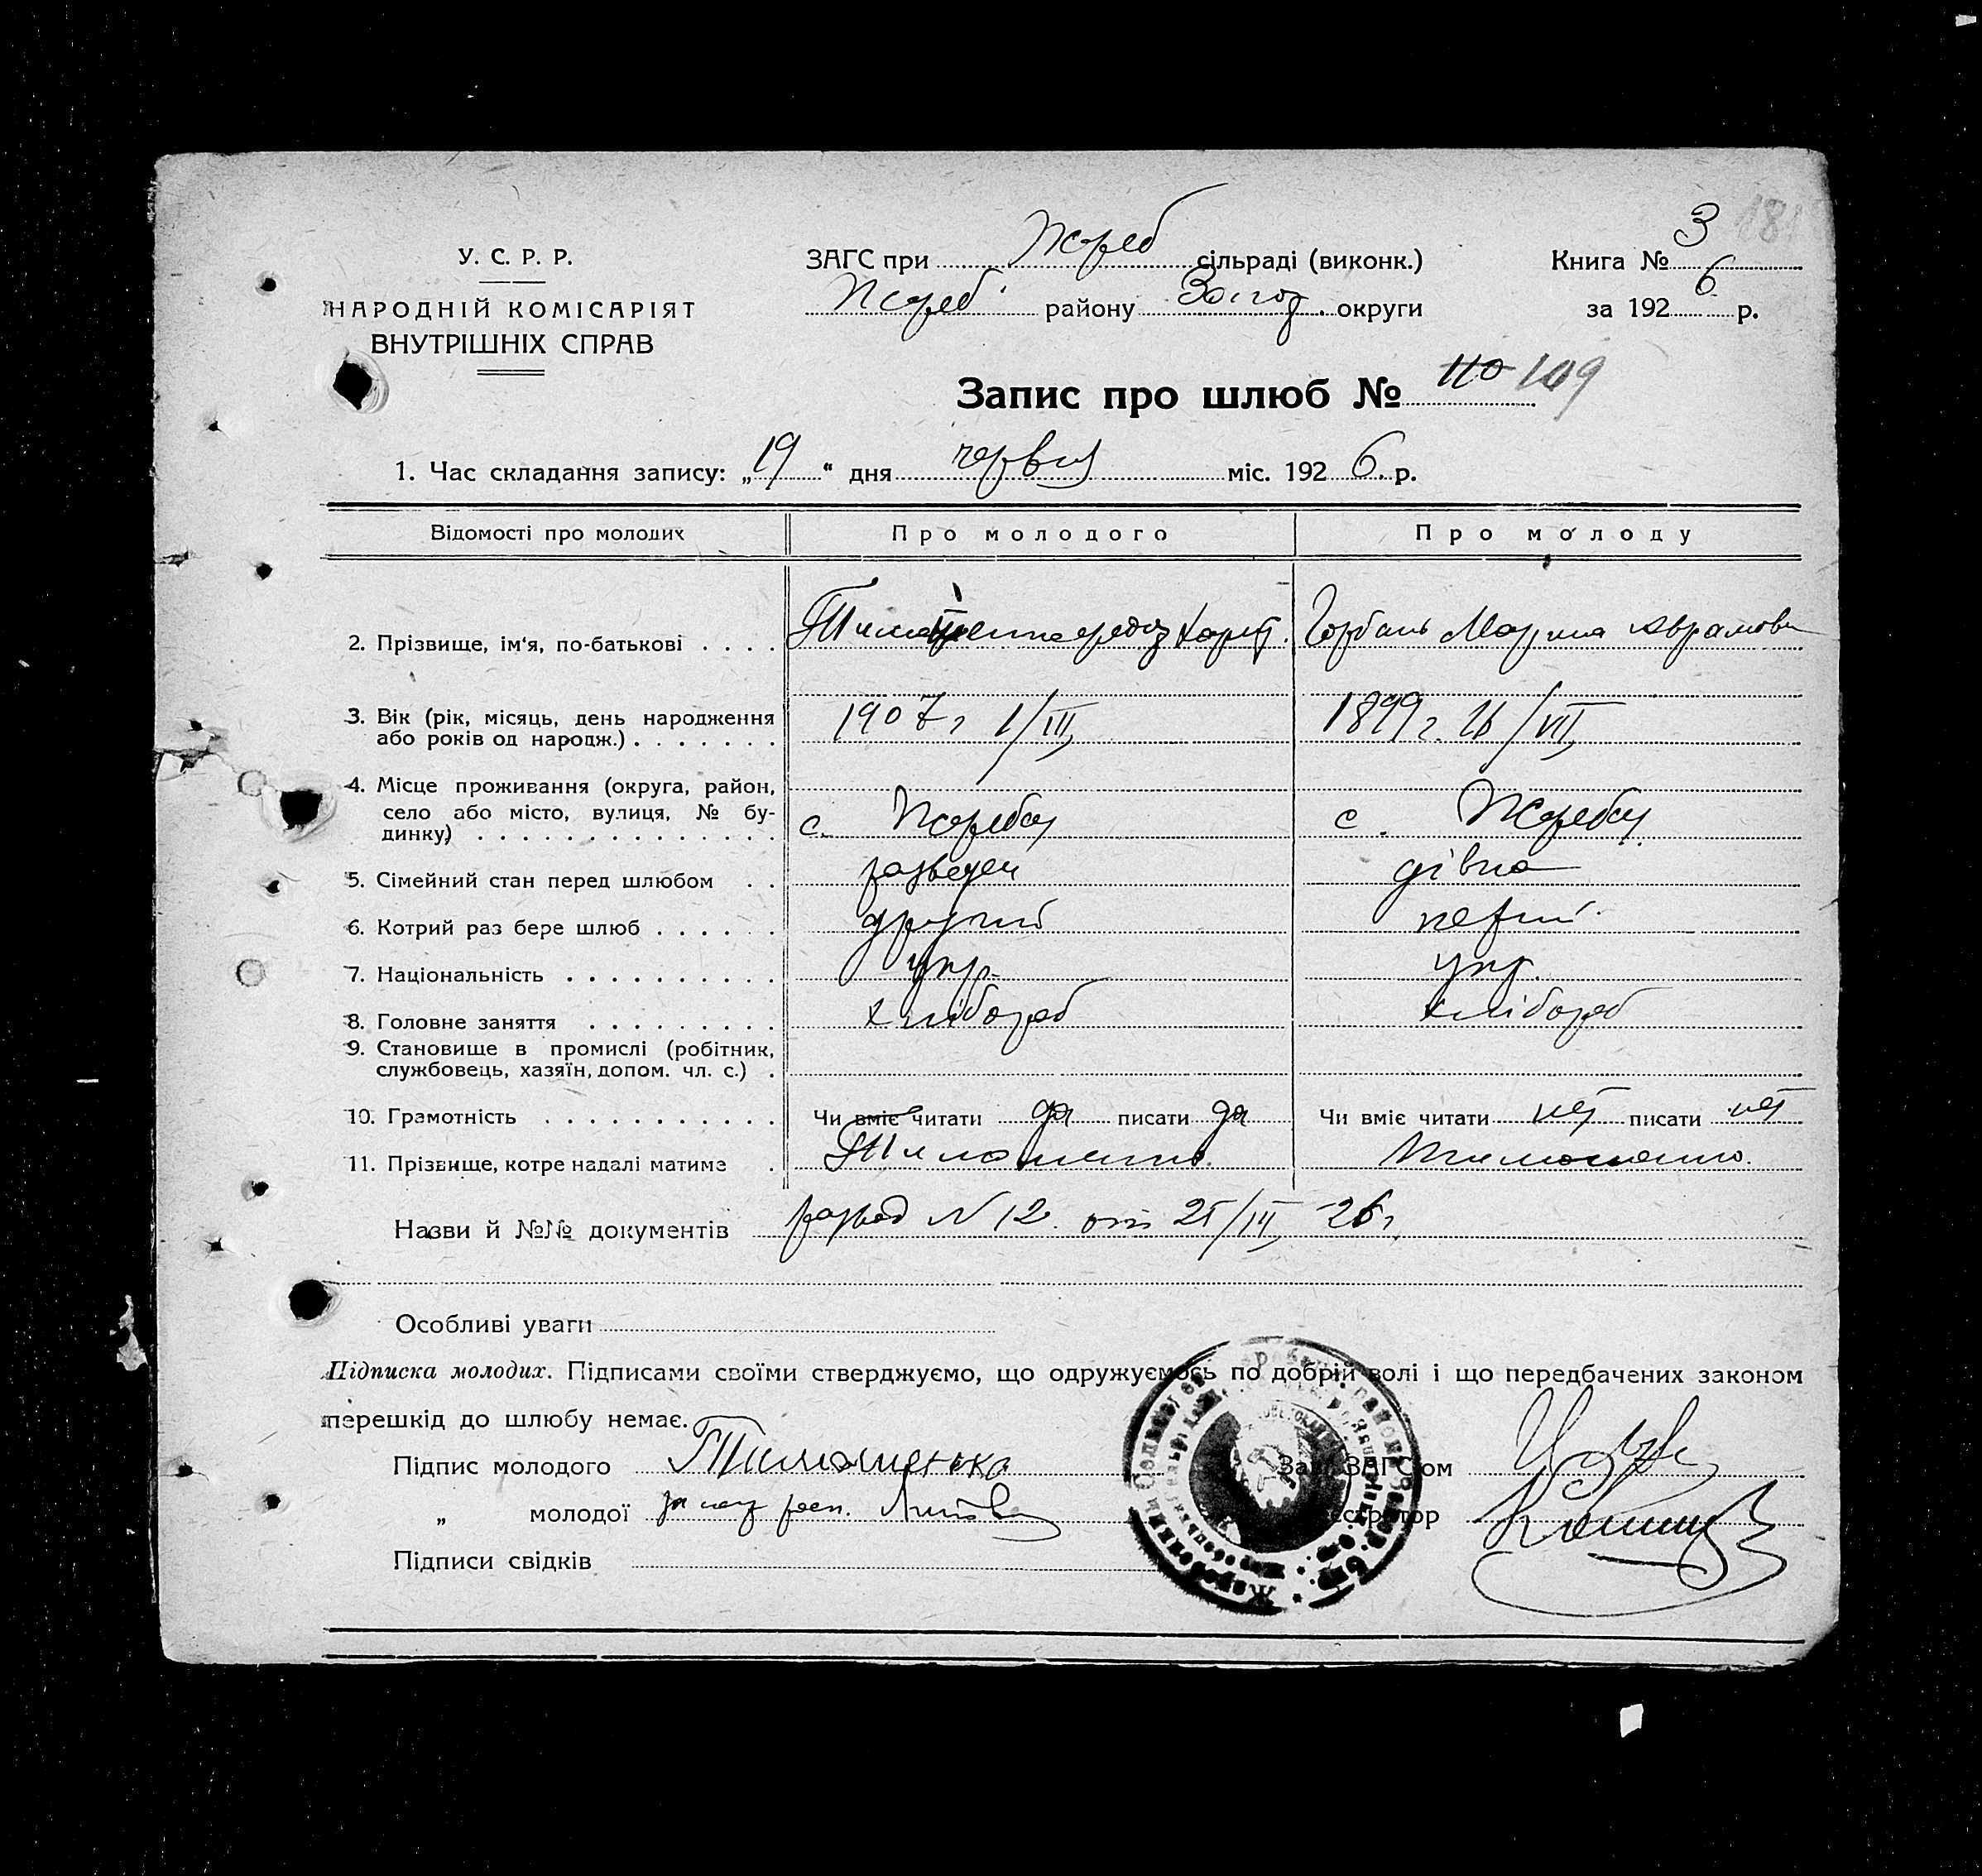 181
У. С. Р. Р.
НАРОДНІЙ КОМІСАРІЯТ
ВНУТРІШНІХ СПРАВ
ЗАГС при Жереб сільраді (виконк.)
Жереб район у Запор. округи
Книга № 3
за 192 6 р.
Запис про шлюб № 110 109
1. Час складання запису: „19“ дня червня міс. 192 6 р.
Відомості про молодих Про молодого Про молоду
2. Прізвище, ім'я, по-батькові . . . . Тимошенко Федор Харит. Горбань Марина Аврамовн
3. Вік (рік, місяць, день народження
або років од народж.) . . . . . . . 1907 г 1/III 1899 г. 16/VII
4. Місце проживання (округа, район,
село або місто, вулиця, № бу-
динку) . . . . . . . . . . . . . с. Жеребец с. Жеребец
5. Сімейний стан перед шлюбом . . разведен дівка
6. Котрий раз бере шлюб . . . . . . другий
7. Національність . . . . . . . . . . укр. укр.
8. Головне заняття . . . . . . . . . хлібороб хлібороб
9. Становище в промислі (робітник,
службовець, хазяїн, допом. чл. с.) .
10. Грамотність . . . . . . . . . . . Чи вміє читати да писати да Чи вміє читати нет писати нет
11. Прізвище, котре надалі матиме . Тимошенко. Тимошенко.
Назви й №№ документів развод N 12. от 25/III 26 г.
Особливі уваги
Підписка молодих. Підписами своїми стверджуємо, що одружуємось по добрій волі і що передбачених законом
перешкід до шлюбу немає.
Підпис молодого Тимошенко
Зав. ЗАГС'ом
„ молодої за негр расп.
Реєстратор
Підписи свідків